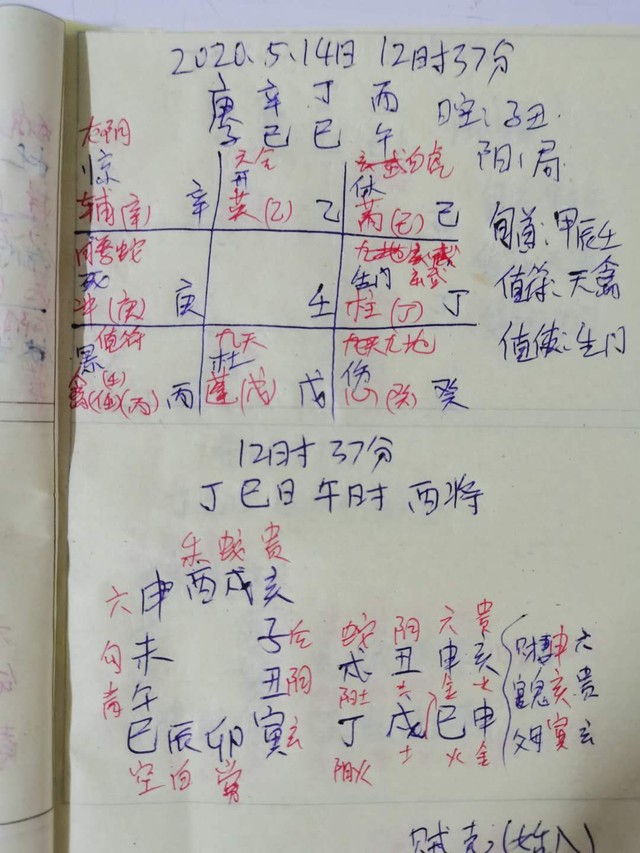 2020.5.14日 12时37分
庚 辛 丁 丙
子 巳 巳 午
日空:子丑
阳1局
太阴 六合 玄武白虎
惊 开 休
辅(辛) 辛 英(乙) 乙 芮(己) 己
旬首:甲辰壬
螣蛇 九地 玄武
死 生门
冲(庚) 庚 壬 柱(丁) 丁
值符:天禽
值符 九天 九天九地
景 杜 伤
(丙) 丙 蓬(戊) 戊 心(癸) 癸
值使:生门
12时37分
丁巳日 午时 酉将
朱 蛇 贵
六 申 酉 戌 亥
勾 未 子 后
青 午 丑 阴
巳 辰 卯 寅 玄
空 白 常
蛇 阴 六 贵
戌 丑 申 亥
阳土 土 金 水
丁 戌 巳 申
阳火 土 火 金
财 申 六
官 亥 贵
父母 寅 玄